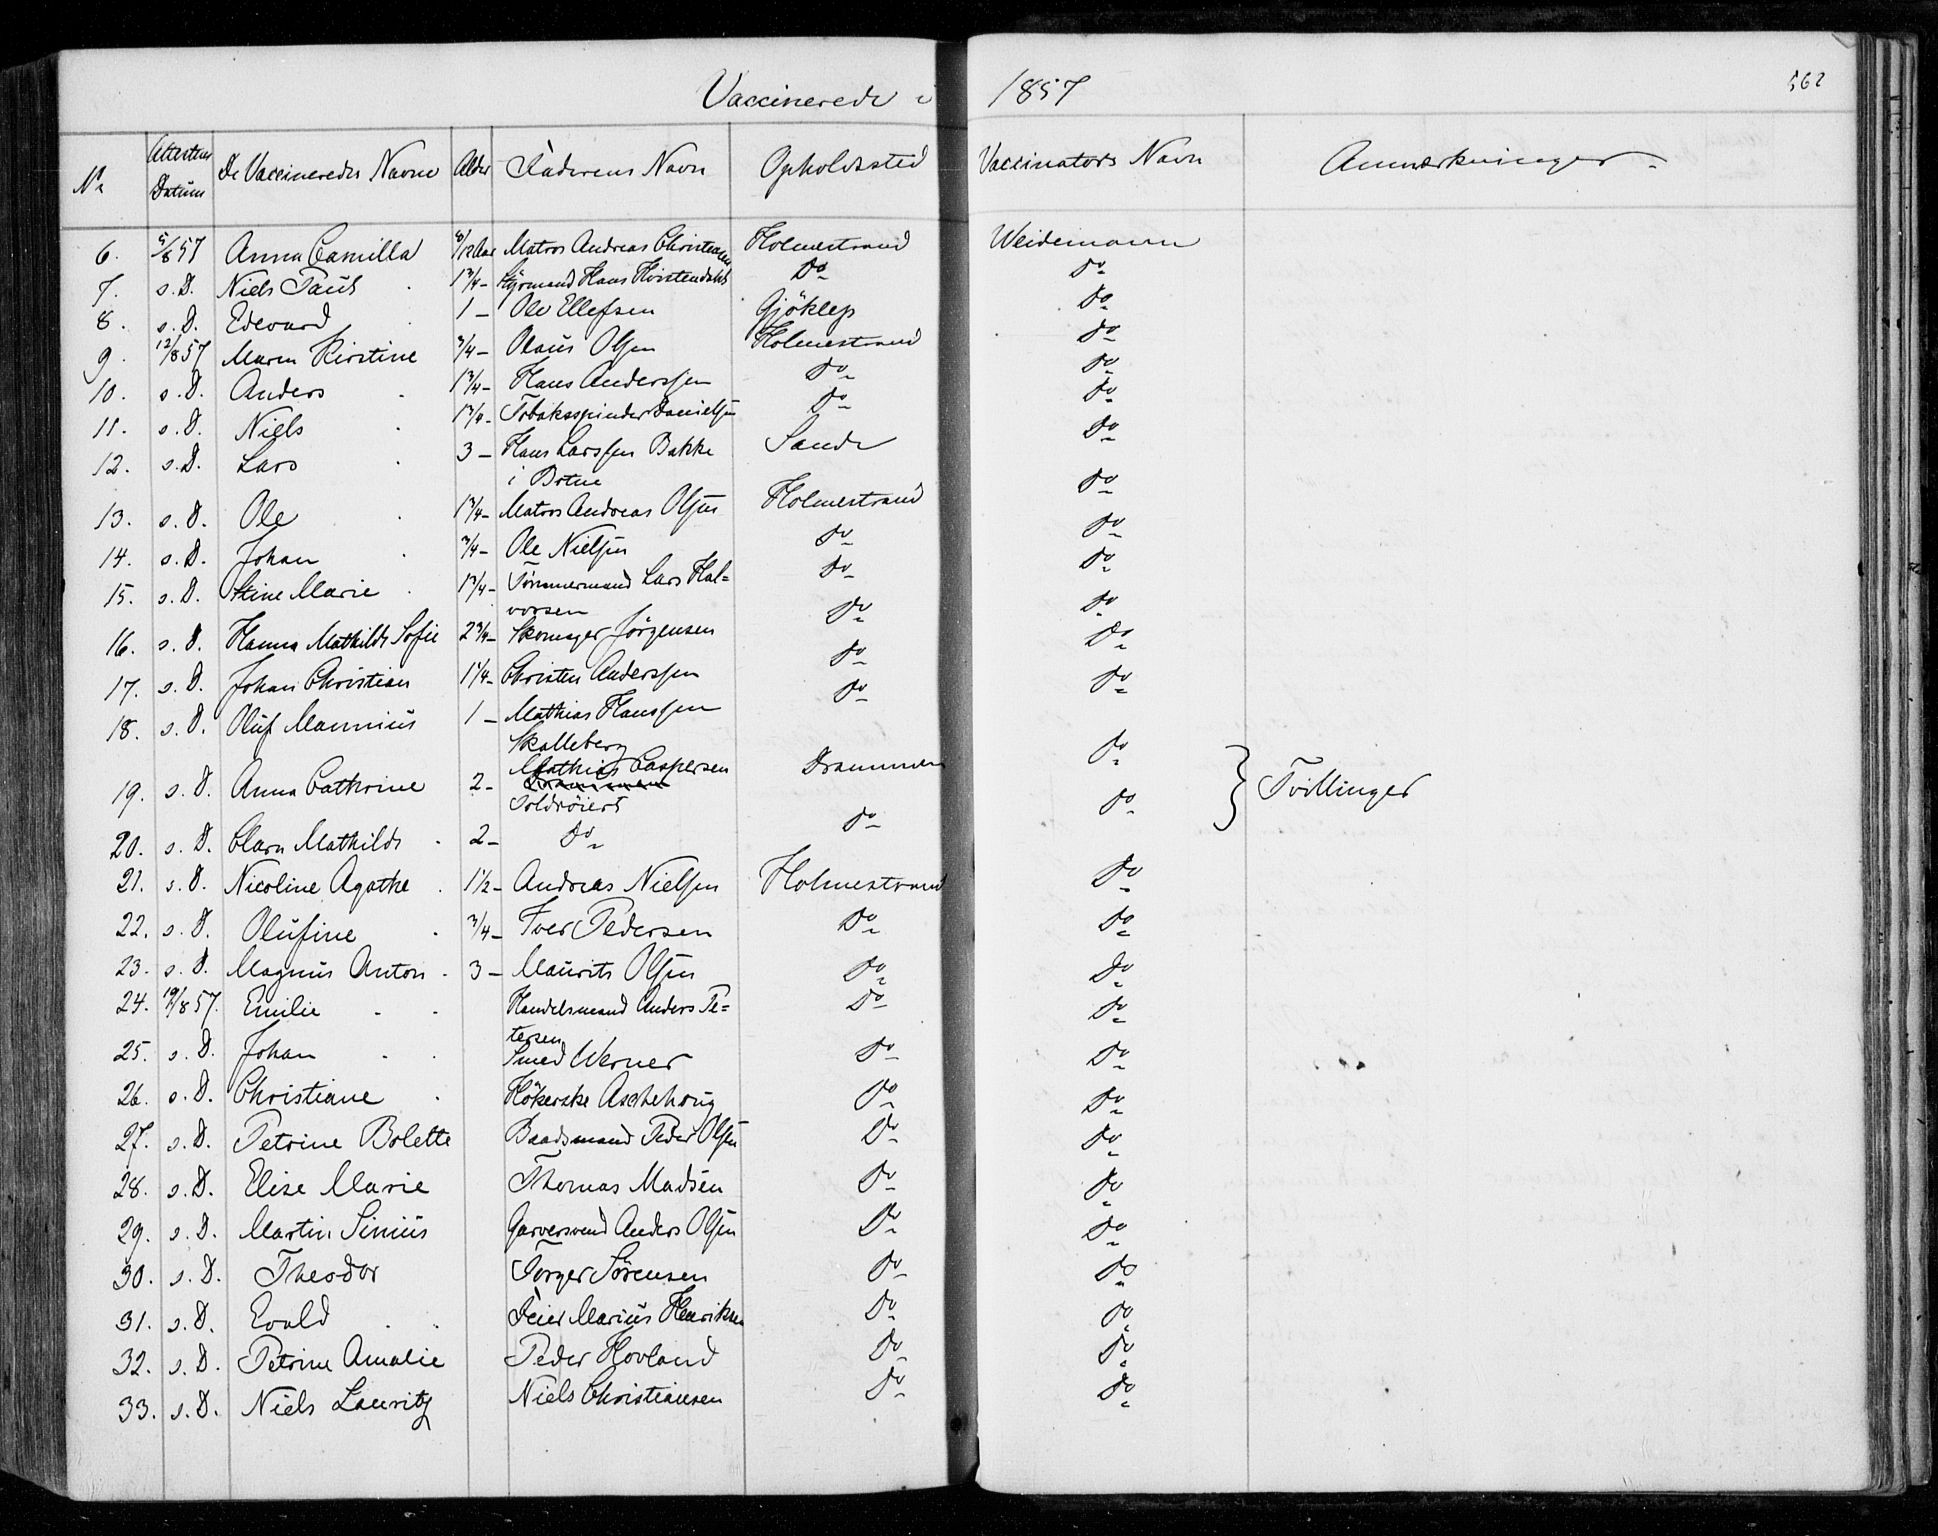 Vaccinerede i 1857
562
No Attestens Datum De Vaccineredes Navne Alder Faderens Navn Opholdssted Vaccinators Navn Anmærkninger
6. 5/8 57 Anna Camilla 8/12 Aar Matros Andreas Christensen Holmestrand Weidemann
7. s. D. Niels Paul 1 3/4 - Styrmand Hans Do Do
8. s. D. Edevard 1 - Ole Ellefsen Gjöklep Do
9. 12/8 57 Maren Kirstine 3/4 - Olaus Olsen Holmestrand Do
10. s. D. Anders 1 3/4 - Hans Anderssen Do Do
11. s. D. Niels 1 3/4 - Tobaksspinder Danielsen Do Do
12. s. D. Lars 3 - Hans Larssen Bakke Sande Do
i Botne
13. s. D. Ole 1 3/4 - Matros Andreas Olsen Holmestrand Do
14. s. D. Johan 3/4 - Ole Nielsen Do Do
15. s. D. Stine Marie 1 3/4 - Tømmermand Lars Hal= Do Do
vorsen
16. s. D. Hanna Mathilde Sofie 2 3/4 - Skomager Jörgensen Do Do
17. s. D. Johan Christian 1 1/4 - Christen Anderssen Do Do
18. s. D. Oluf Mannius 1 - Mathias Hanssen Do Do
Skalleberg
19. s. D. Anna Cathrine 2 - Mathias Caspersen Drammen Do } Tvillinger
Toldröiert
20. s. D. Clara Mathilde 2 - Do Do Do
21. s. D. Nicoline Agathe 1 1/2 - Andreas Nielsen Holmestrand Do
22. s. D. Olufine 3/4 - Iver Pedersen Do Do
23. s. D. Magnus Anton 3 - Maurits Olsen Do Do
24. 19/8 57. Emilie Handelsmand Anders Pe= Do Do
tersen
25. s. D. Johan Smed Werner Do Do
26. s. D. Christiane Hökerske Aschehoug Do Do
27. s. D. Petrine Bolette Baadsmand Peder Olsen Do Do
28. s. D. Elise Marie Thomas Madsen Do Do
29. s. D. Martin Sinius Garversvend Anders Olsen Do Do
30. s. D. Theodor Torger Sörensen Do Do
31. s. D. Evald Feier Marius Henriksen Do Do
32. s. D. Petrine Amalie Peder Hovland Do Do
33. s. D. Niels Lauritz Niels Christiansen Do Do